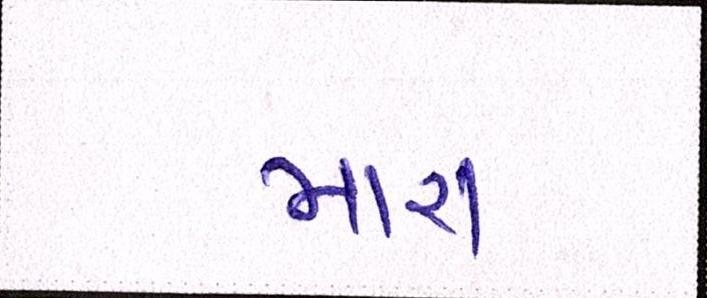 મારા